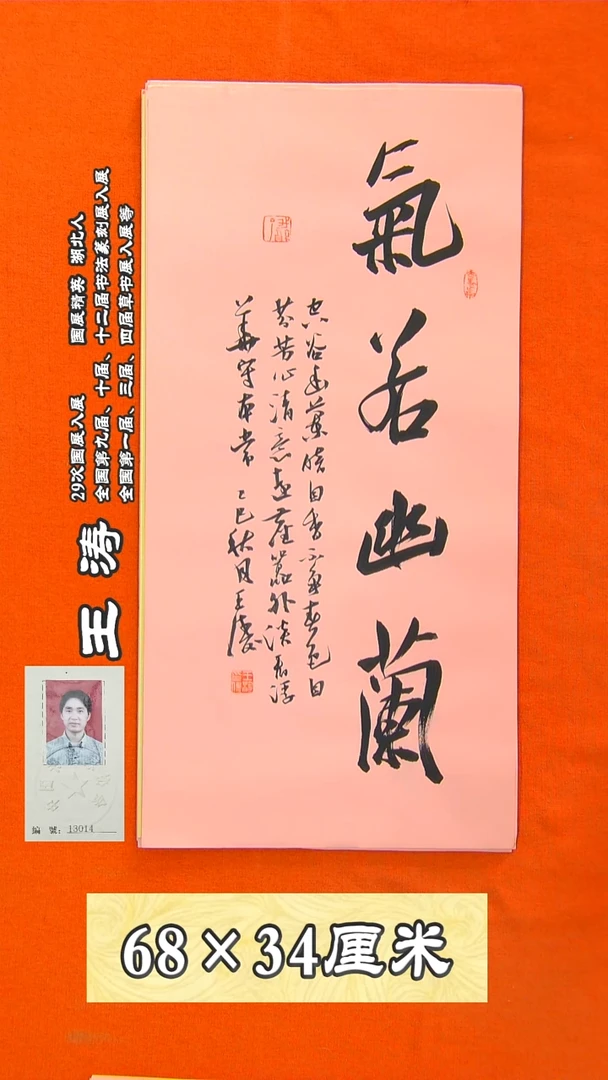 氣若幽蘭
空谷幽蘭暗自香不爭春色自
芬芳心清意遠塵囂外淡看浮
華守本常 乙巳秋月王濤
29次国展入展 国展精英 湖北人
全国第九届、十届、十二届书法篆刻展入展
全国第一届、三届、四届草书展入展等
王涛
編 號：13014
68×34厘米